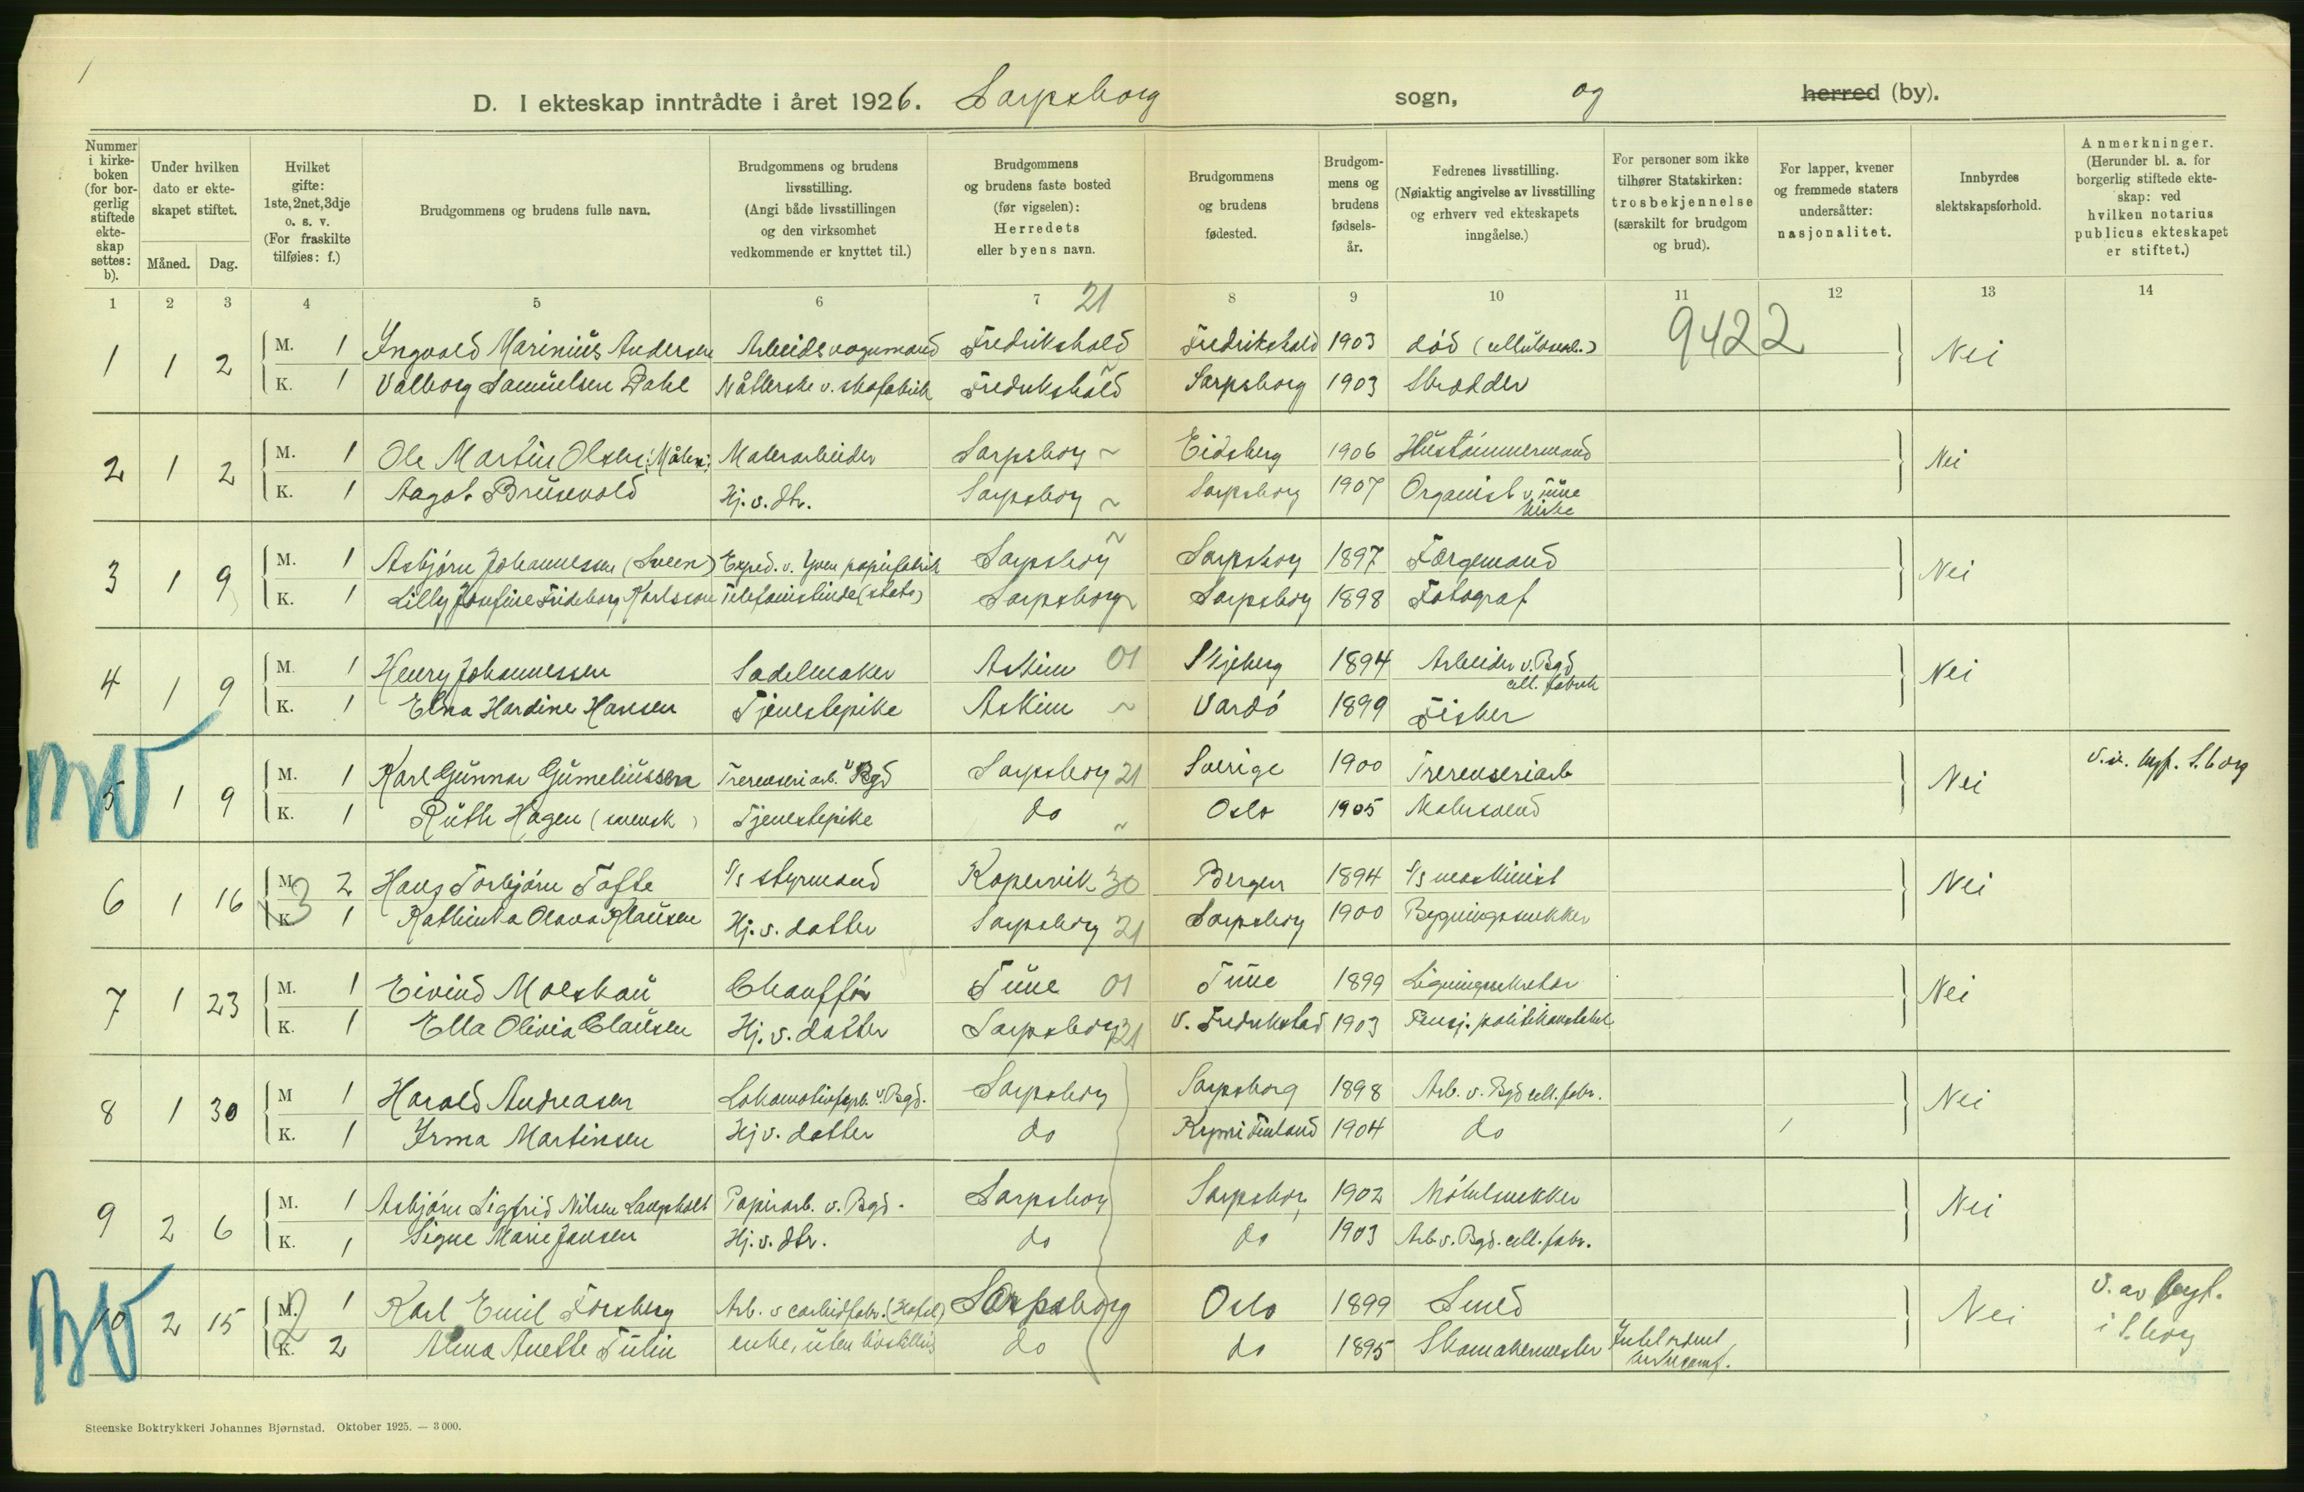 1
D. I ekteskap inntrådte i året 1926. Sarpsborg sogn, og herred (by).
Nummer i kirke-boken (for bor-gerlig stiftede ekte-skap settes: b).
Under hvilken dato er ekte-skapet stiftet.
Måned. Dag.
Hvilket gifte: 1ste, 2net, 3dje o. s. v. (For fraskilte tilføies: f.)
Brudgommens og brudens fulle navn.
Brudgommens og brudens livsstilling. (Angi både livsstillingen og den virksomhet vedkommende er knyttet til.)
Brudgommens og brudens faste bosted (før vigselen): Herredets eller byens navn.
Brudgommens og brudens fødested.
Brudgom-mens og brudens fødsels-år.
Fedrenes livsstilling. (Nøiaktig angivelse av livsstilling og erhverv ved ekteskapets inngåelse.)
For personer som ikke tilhører Statskirken: trosbekjennelse (særskilt for brudgom og brud).
For lapper, kvener og fremmede staters undersåtter: nasjonalitet.
Innbyrdes slektskapsforhold.
Anmerkninger. (Herunder bl. a. for borgerlig stiftede ekte-skap: ved hvilken notarius publicus ekteskapet er stiftet.)
1 2 3 4 5 6 7 21 8 9 10 11 12 13 14
9422
1 1 2 M. 1 Yngvald Marinius Andersen Arbeidsvognmand Fredrikshald Fredrikshald 1903 død (cellulosearb.) Nei
K. 1 Valborg Samuelsen Dahl Nåtlerske v. skofabrik Fredrikshald Sarpsborg 1903 Skrædder
2 1 2 M. 1 Ole Martin Olsen Malerarbeider Sarpsborg ~ Eidsberg 1906 Hustømmermand Nei
K. 1 Aagot Brusevold Hj. v. dtr. Sarpsborg ~ Sarpsborg 1907 Organist v. Tune kirke
3 1 9 M. 1 Asbjørn Johannessen (Sveen) Exped. v. papirfabrik Sarpsborg ~ Sarpsborg 1897 Færgemand Nei
K. 1 Lilly Josefine Frideborg Karlsson Telefonistinde (stats) Sarpsborg ~ Sarpsborg 1898 Fotograf
4 1 9 M. 1 Henry Johannessen Sadelmaker Askim 01 Skjeberg 1894 Arbeider v. Bgd cell. fabrik Nei
K. 1 Elna Hardine Hansen Tjenestepike Askim ~ Vardø 1899 Fisker
BV 5 1 9 M. 1 Karl Gunnar Gumeliussen Trerenseriarb. v. Bgd Sarpsborg 21 Sverige 1900 Trerenseriarb Nei
K. 1 Ruth Hagen (svensk) Tjenestepike do ~ Oslo 1905 Malersvend
6 1 16 M. 2 Hans Torbjørn Tofte S/s styrmand Kopervik 30 Bergen 1894 S/s maskinist Nei
3 K. 1 Kathinka Olava Klausen Hj. v. datter Sarpsborg 21 Sarpsborg 1900 Bygningssnekker
7 1 23 M. 1 Eivind Moeskau Chauffør Tune 01 Tune 1899 Ligningssekretær Nei
K. 1 Ella Olivia Clausen Hj. v. datter Sarpsborg 21 v. Fredrikstad 1903 Pensj. politikonstabel
8 1 30 M 1 Harald Andreasen v. Bgd. Sarpsborg Sarpsborg 1898 Arb. v. Bgd cell. fabr. Nei
K. 1 Yrma Martinsen Hj v. datter do Kymi Finland 1904 do
9 2 6 M. 1 Asbjørn Sigfrid Nilsen Langholt Papirarb. v. Bgd. Sarpsborg Sarpsborg 1902 Møbelsnekker Nei
K. 1 Signe Marie Jansen Hj. v. dtr. do do 1903 Arb v. Bgd. cell. fabr.
BV 10 2 15 M. 1 Karl Emil Forsberg Arb. v carbidfabr. (Hafsl) Sarpsborg Oslo 1899 Smed Nei V. av byf. i S.borg
2 K. 2 Alma Anette Tulin enke, uten livsstilling do do 1895 Skomakermester
Steenske Boktrykkeri Johannes Bjørnstad. Oktober 1925. — 3 000.